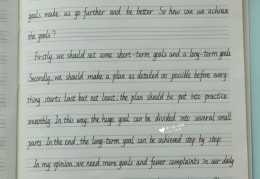 goals make us go further and be better. So how can we achieve
the goals?
Firstly, we should set some short-term goals and a long-term goals
Secondly, we should make a plan as detailed as possible before every-
thing starts. Last but not least, the plan should be put into practice
smoothly. In this way, the huge goal can be divided into several small
parts. In the end, the long-term goal can be achieved step by step.
In my opinion, we need more goals and fewer complaints in our daily